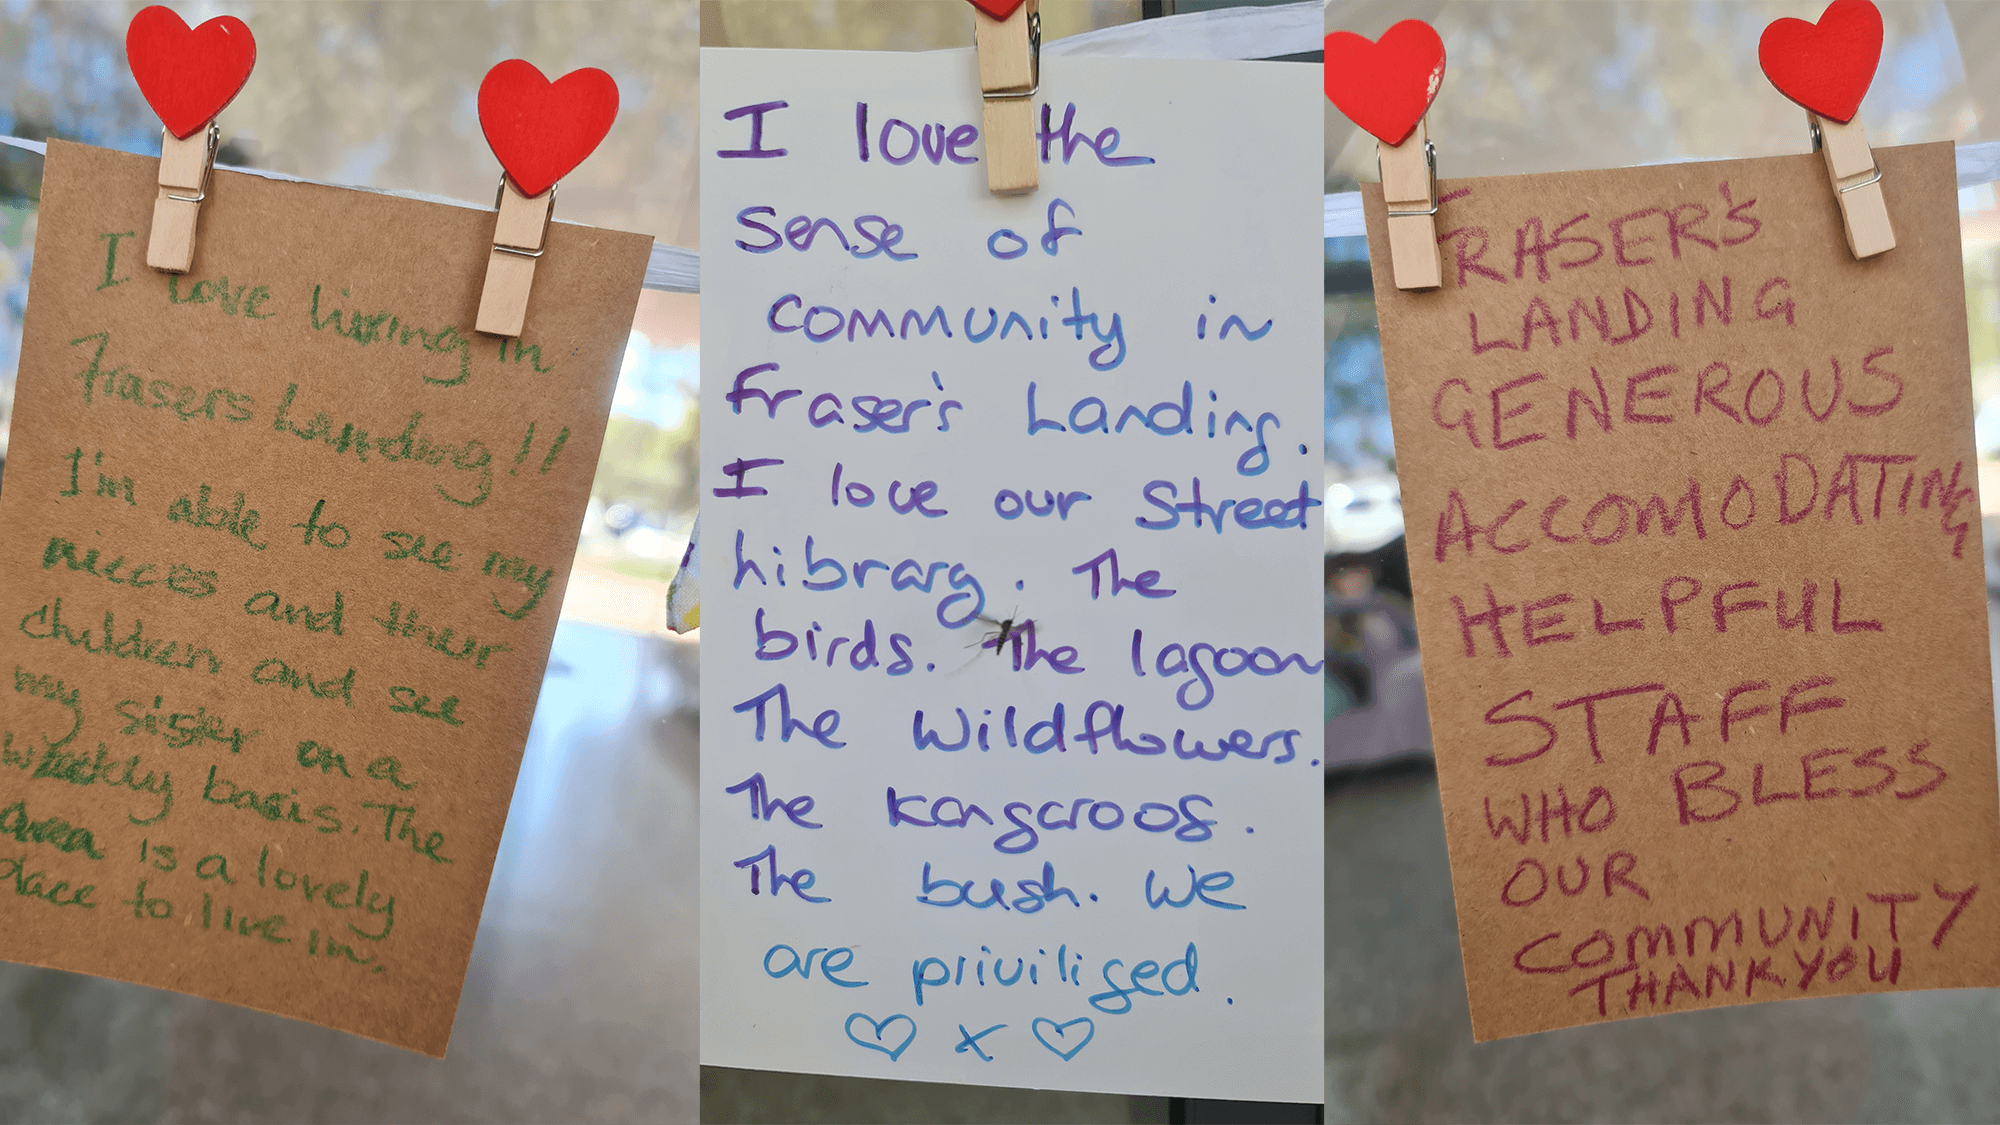 I love living in
Frasers Landing!!
I'm able to see my
nieces and their
children and see
my sister on a
weekly basis. The
area is a lovely
place to live in.
I love the
sense of
community in
Fraser's Landing.
I love our Street
Library. The
birds. The lagoon
The Wildflowers.
The Kangaroos.
The bush. We
are priviliged.
♡ x ♡
FRASER'S
LANDING
GENEROUS
ACCOMODATING
HELPFUL
STAFF
WHO BLESS
OUR
COMMUNITY
THANKYOU